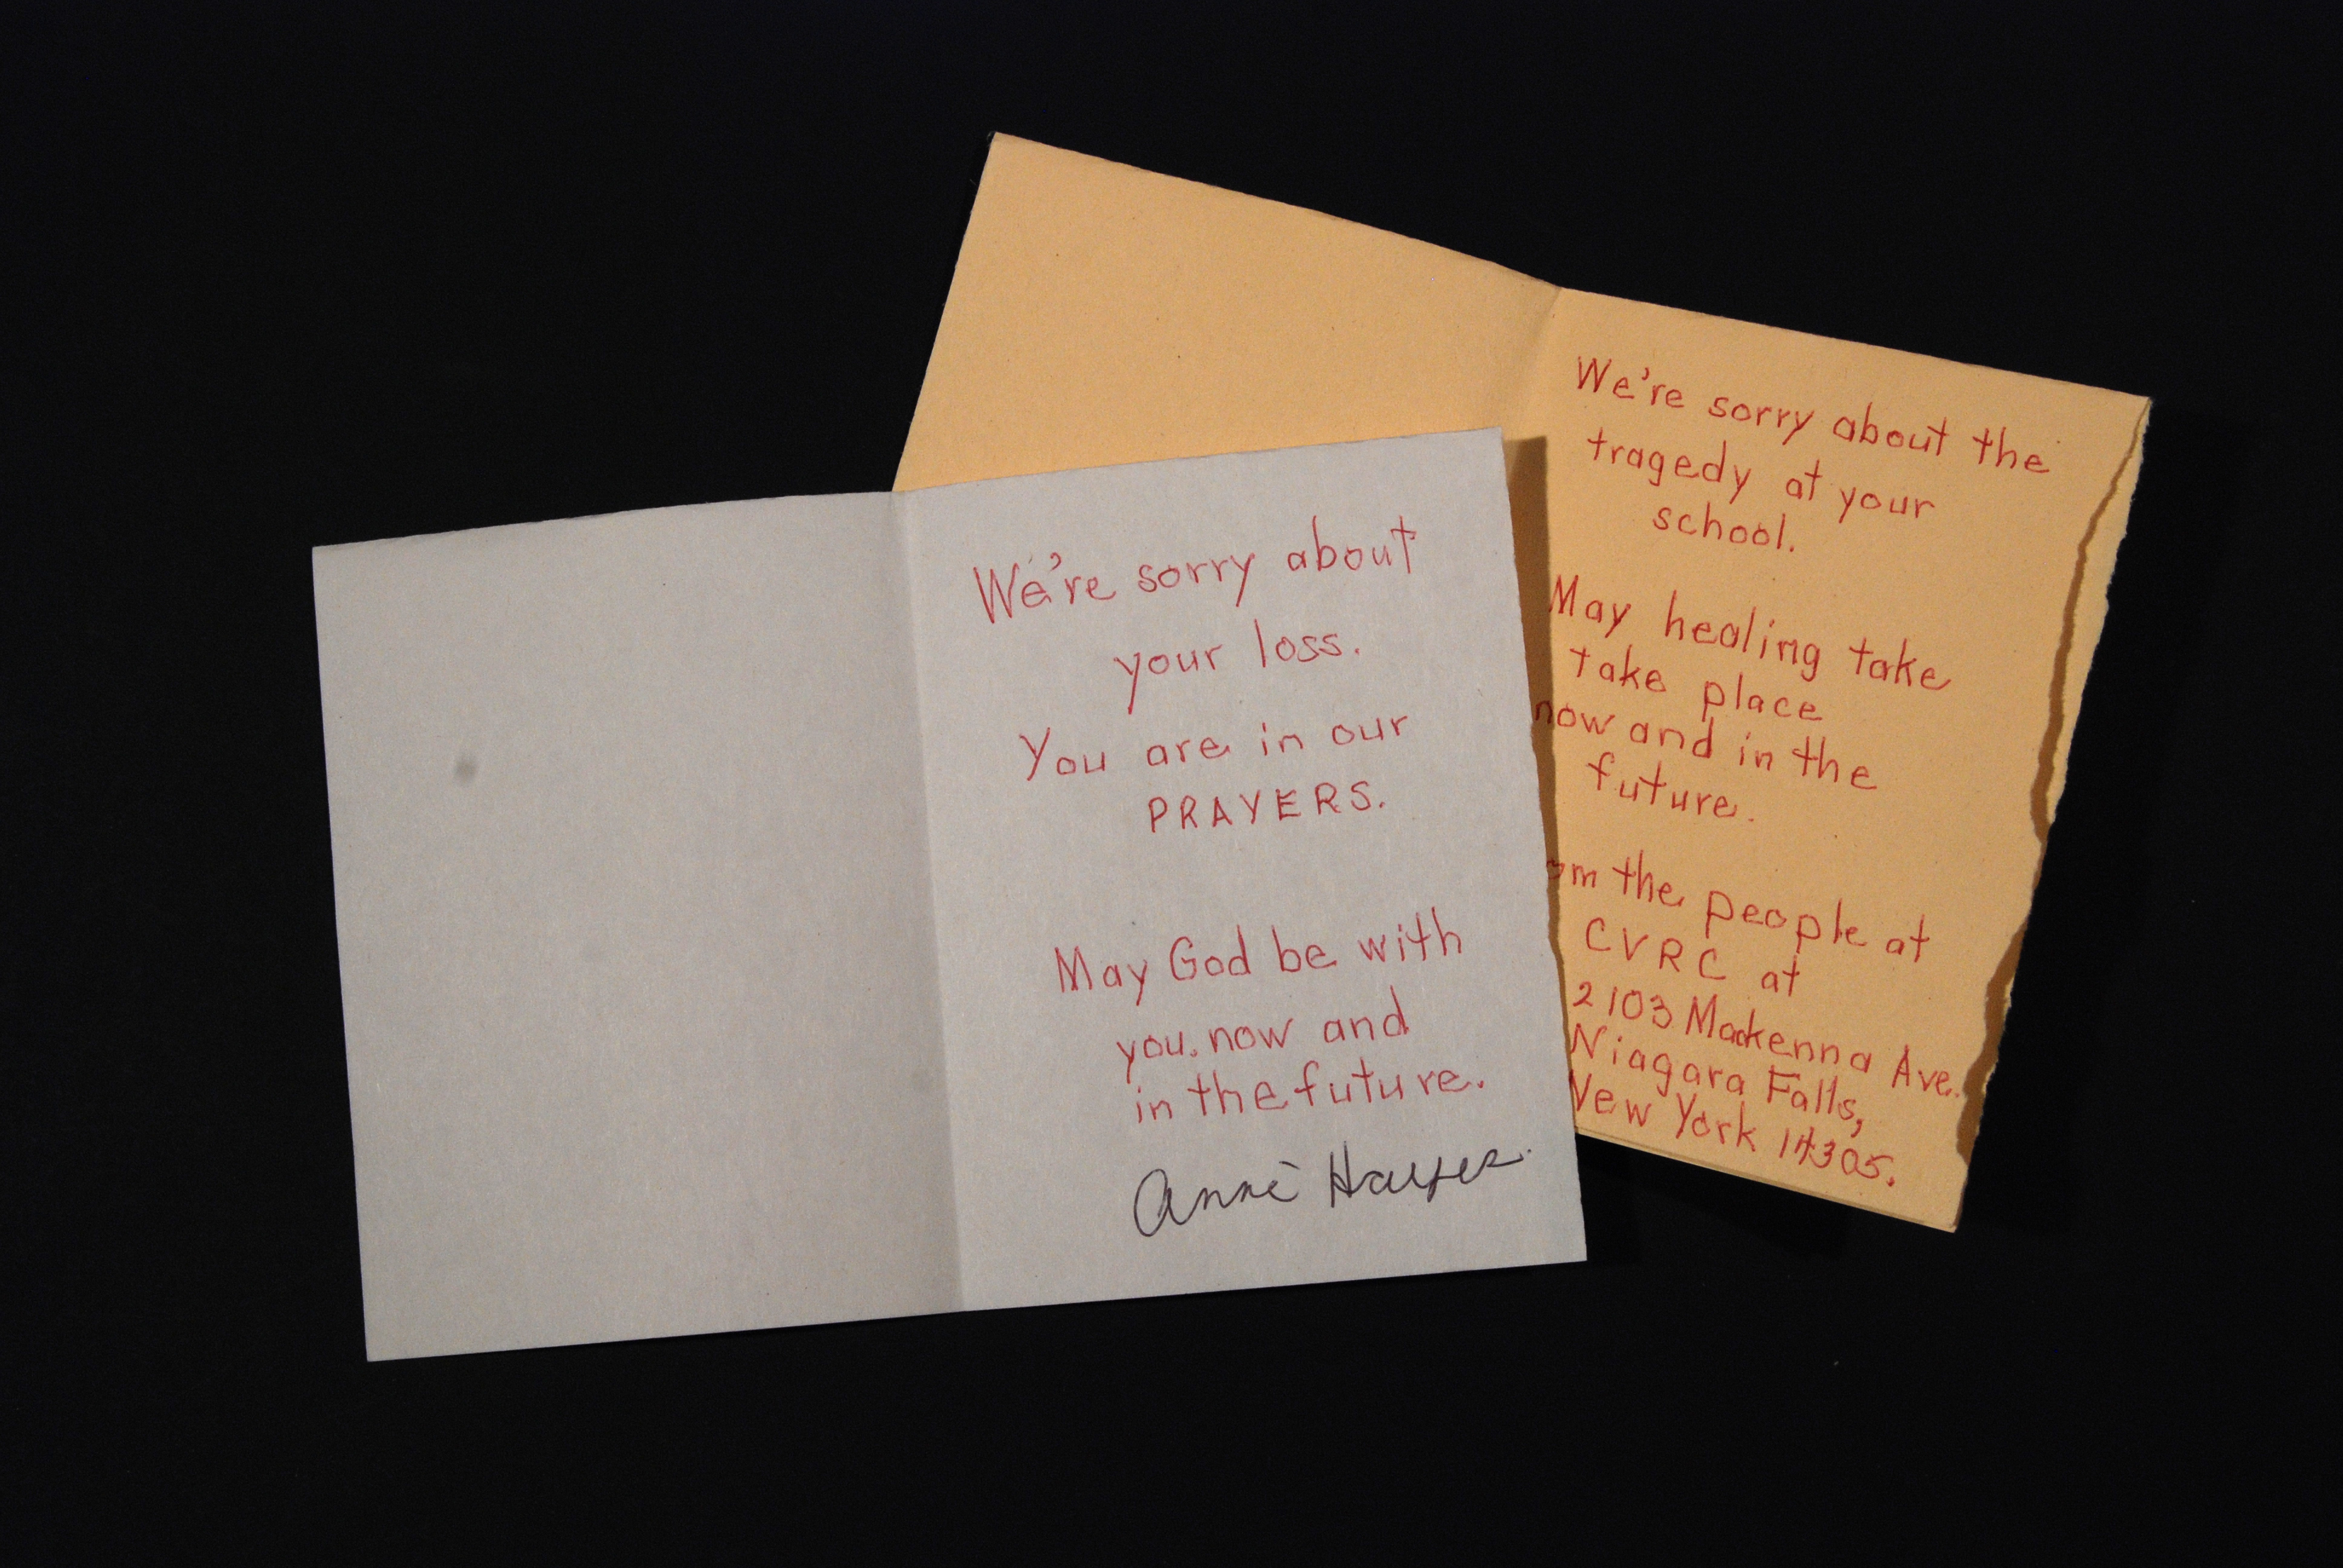 We're sorry about
your loss.
You are in our
PRAYERS.
May God be with
you. now and
in the future.
Anne
We're sorry about the
tragedy at your
school.
May healing take
take place
now and in the
future.
om the people at
CVRC at
2103 Mackenna Ave.
Niagara Falls,
New York 14305.